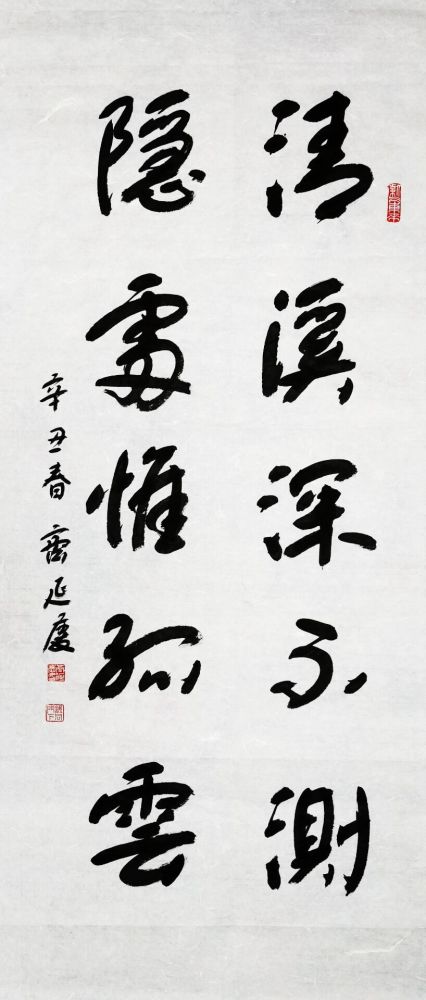 清溪深不測
隱處惟孤雲
辛丑春 齊延慶